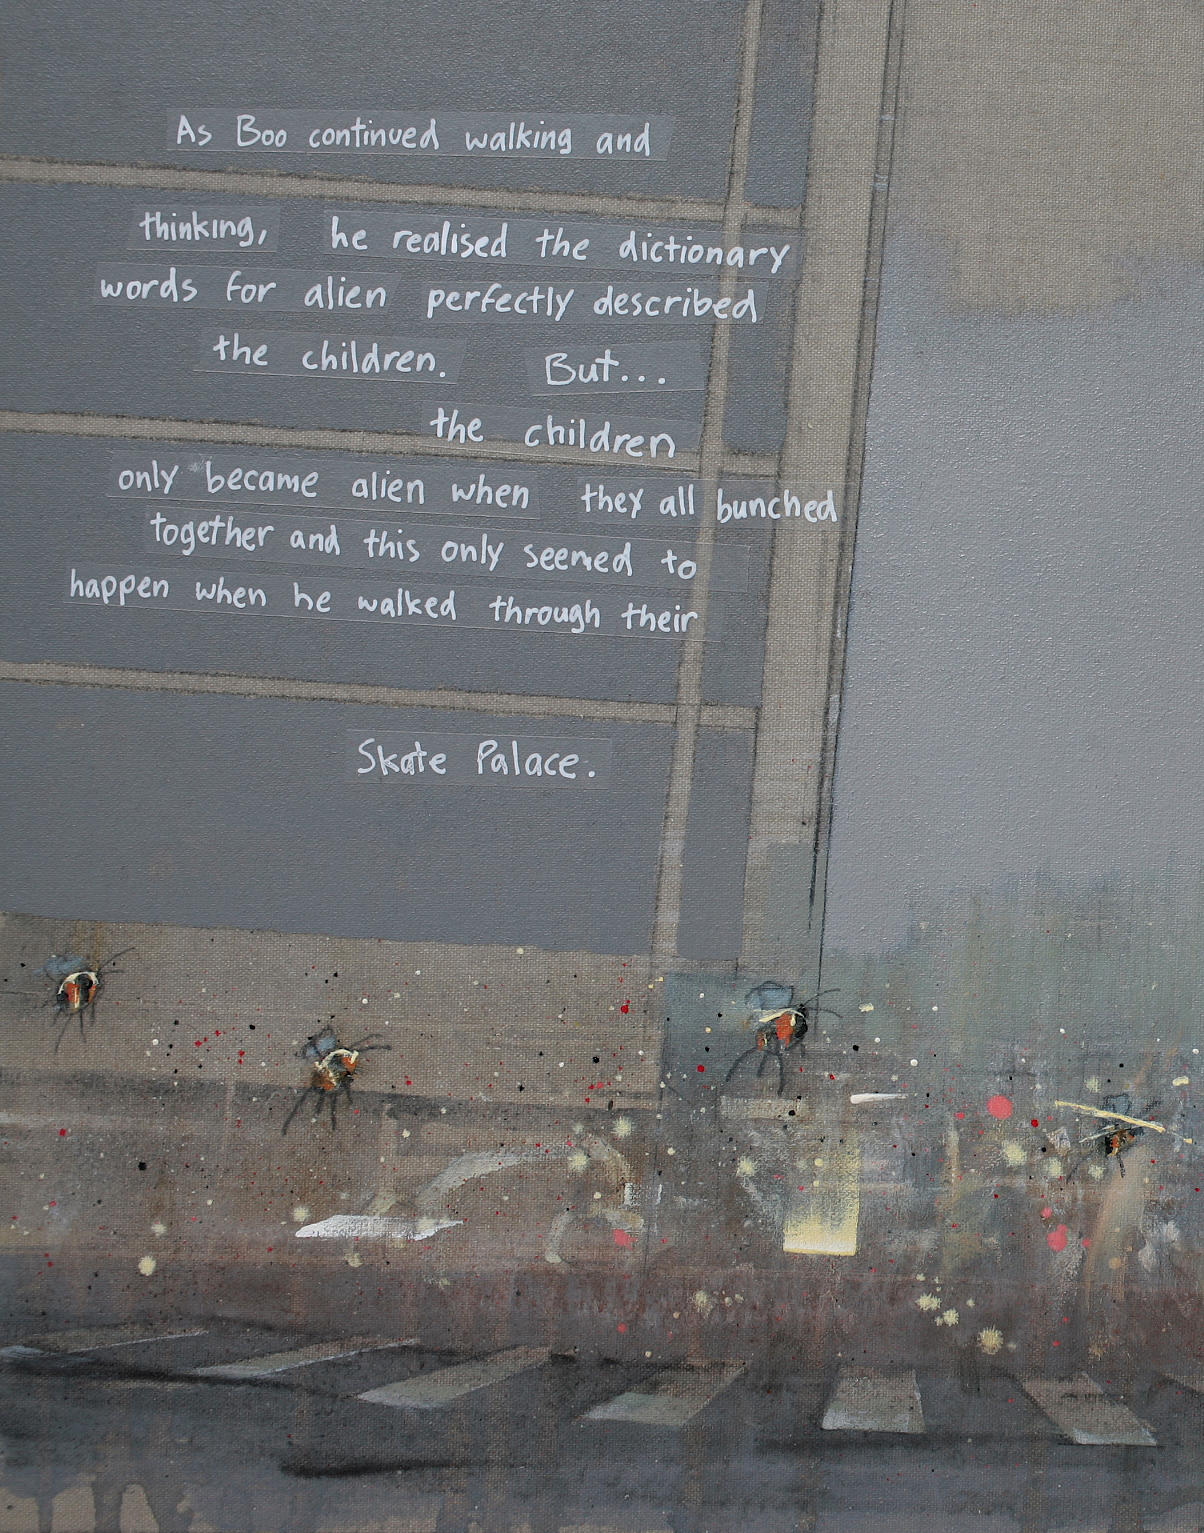 As Boo continued walking and
thinking, he realised the dictionary
words for alien perfectly described
the children. But...
the children
only became alien when they all bunched
together and this only seemed to
happen when he walked through their
Skate Palace.